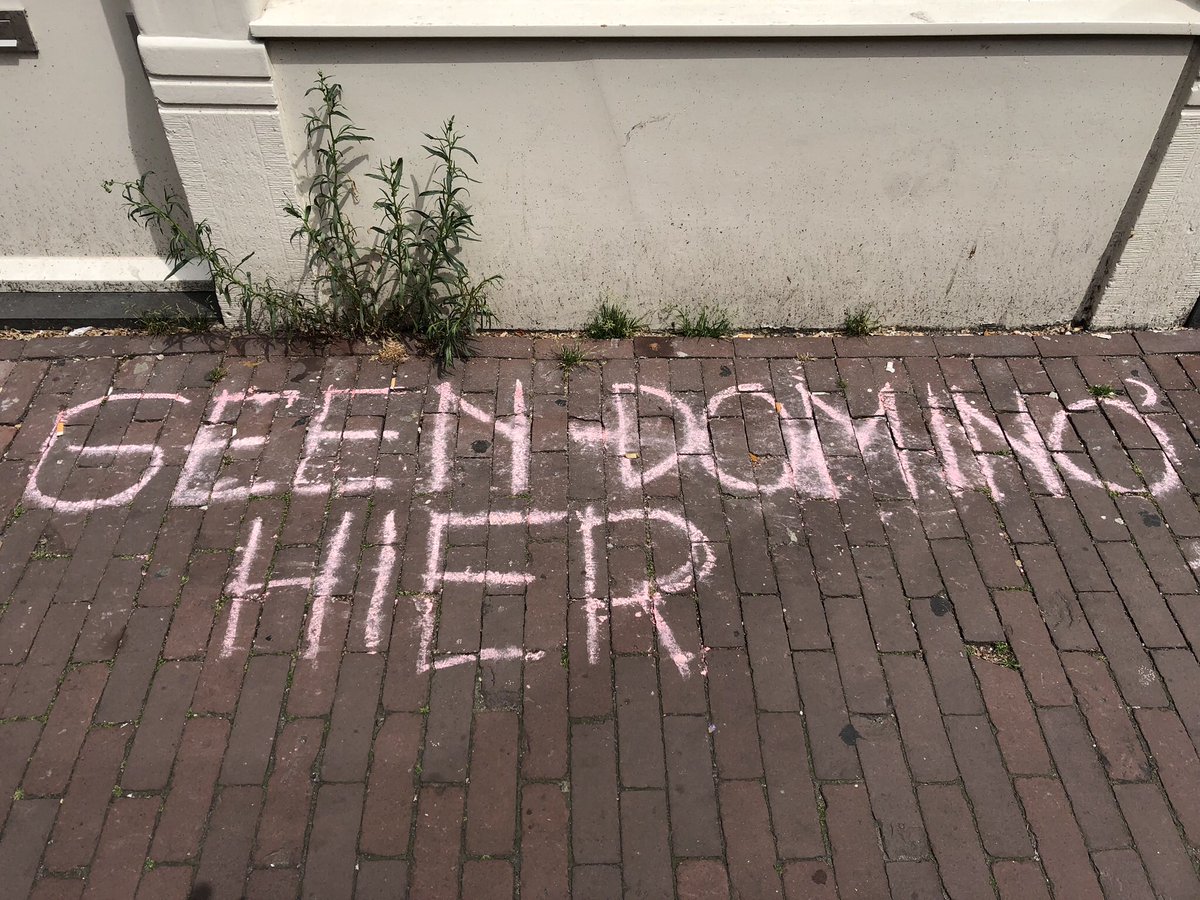 GEEN DOMINO
HIER